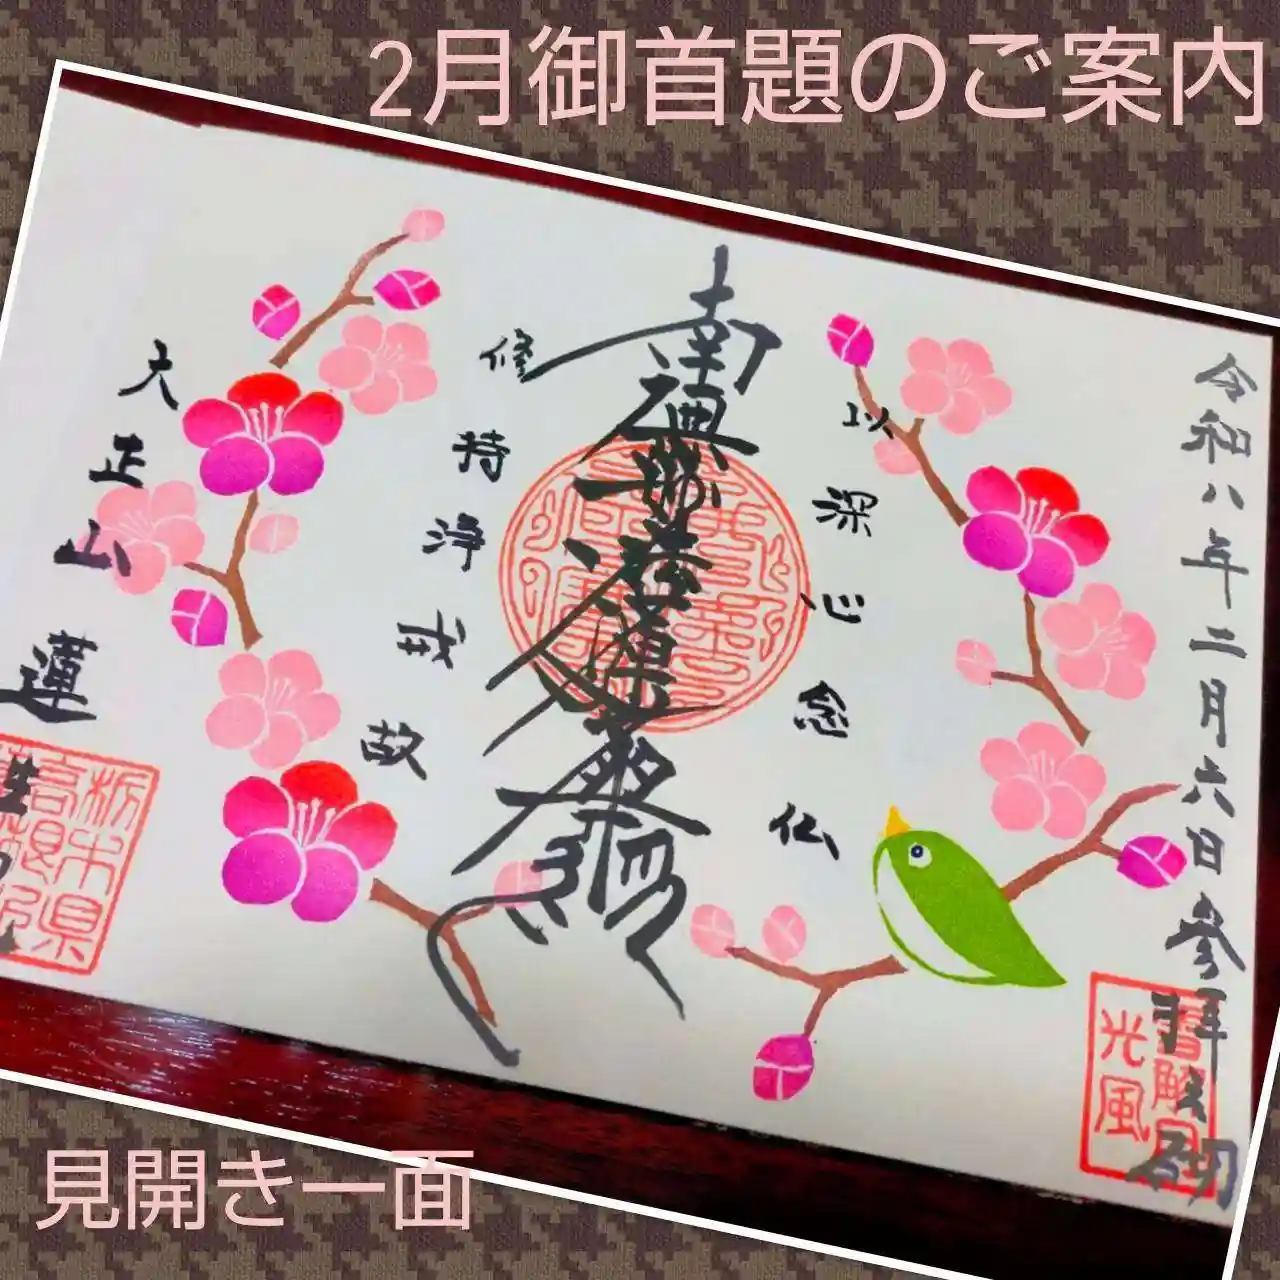 2月御首題のご案内
令和八年二月六日参拝之砌
以深心念仏
南無妙法蓮華経
修持浄戒故
大正山蓮
栃木県
高根沢
光風
見開き一面